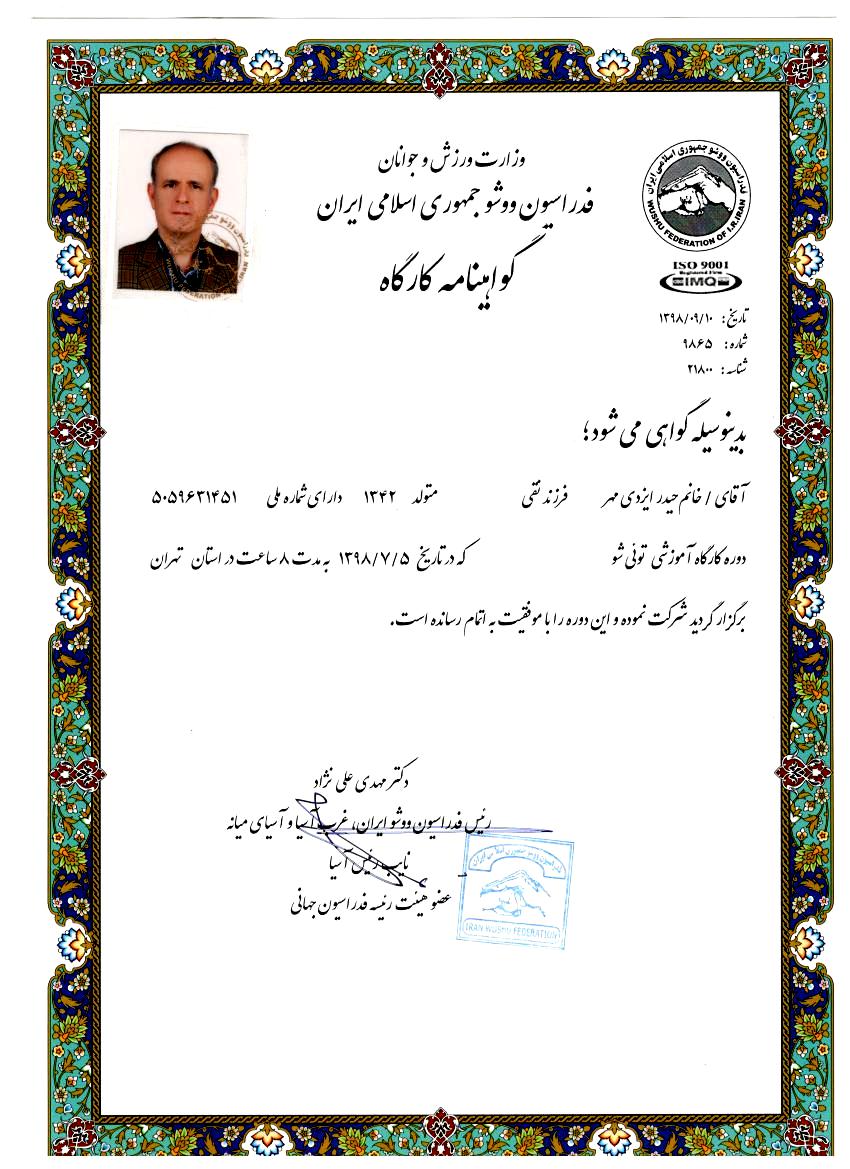 وزارت ورزش و جوانان
فدراسیون ووشو جمهوری اسلامی ایران
گواهینامه کارگاه
فدراسیون ووشو جمهوری اسلامی ایران
WUSHU FEDERATION OF I.R.IRAN
ISO 9001
Registered Firm
IMQ
تاریخ: ۱۳۹۸/۰۹/۱۰
شماره: ۹۸۶۵
شناسه: ۲۱۸۰۰
بدینوسیله گواهی می شود؛
آقای / خانم حیدر ایزدی مهر فرزند نقی متولد ۱۳۴۲ دارای شماره ملی ۵۰۵۹۶۳۱۴۵۱
دوره کارگاه آموزشی توئی شو که در تاریخ ۱۳۹۸/۷/۵ به مدت ۸ ساعت در استان تهران
برگزار گردید شرکت نموده و این دوره را با موفقیت به اتمام رسانده است.
دکتر مهدی علی نژاد
رئیس فدراسیون ووشو ایران، غرب آسیا و آسیای میانه
نایب رئیس آسیا
عضو هیئت رئیسه فدراسیون جهانی
فدراسیون ووشو جمهوری اسلامی ایران
IRAN WUSHU FEDERATION